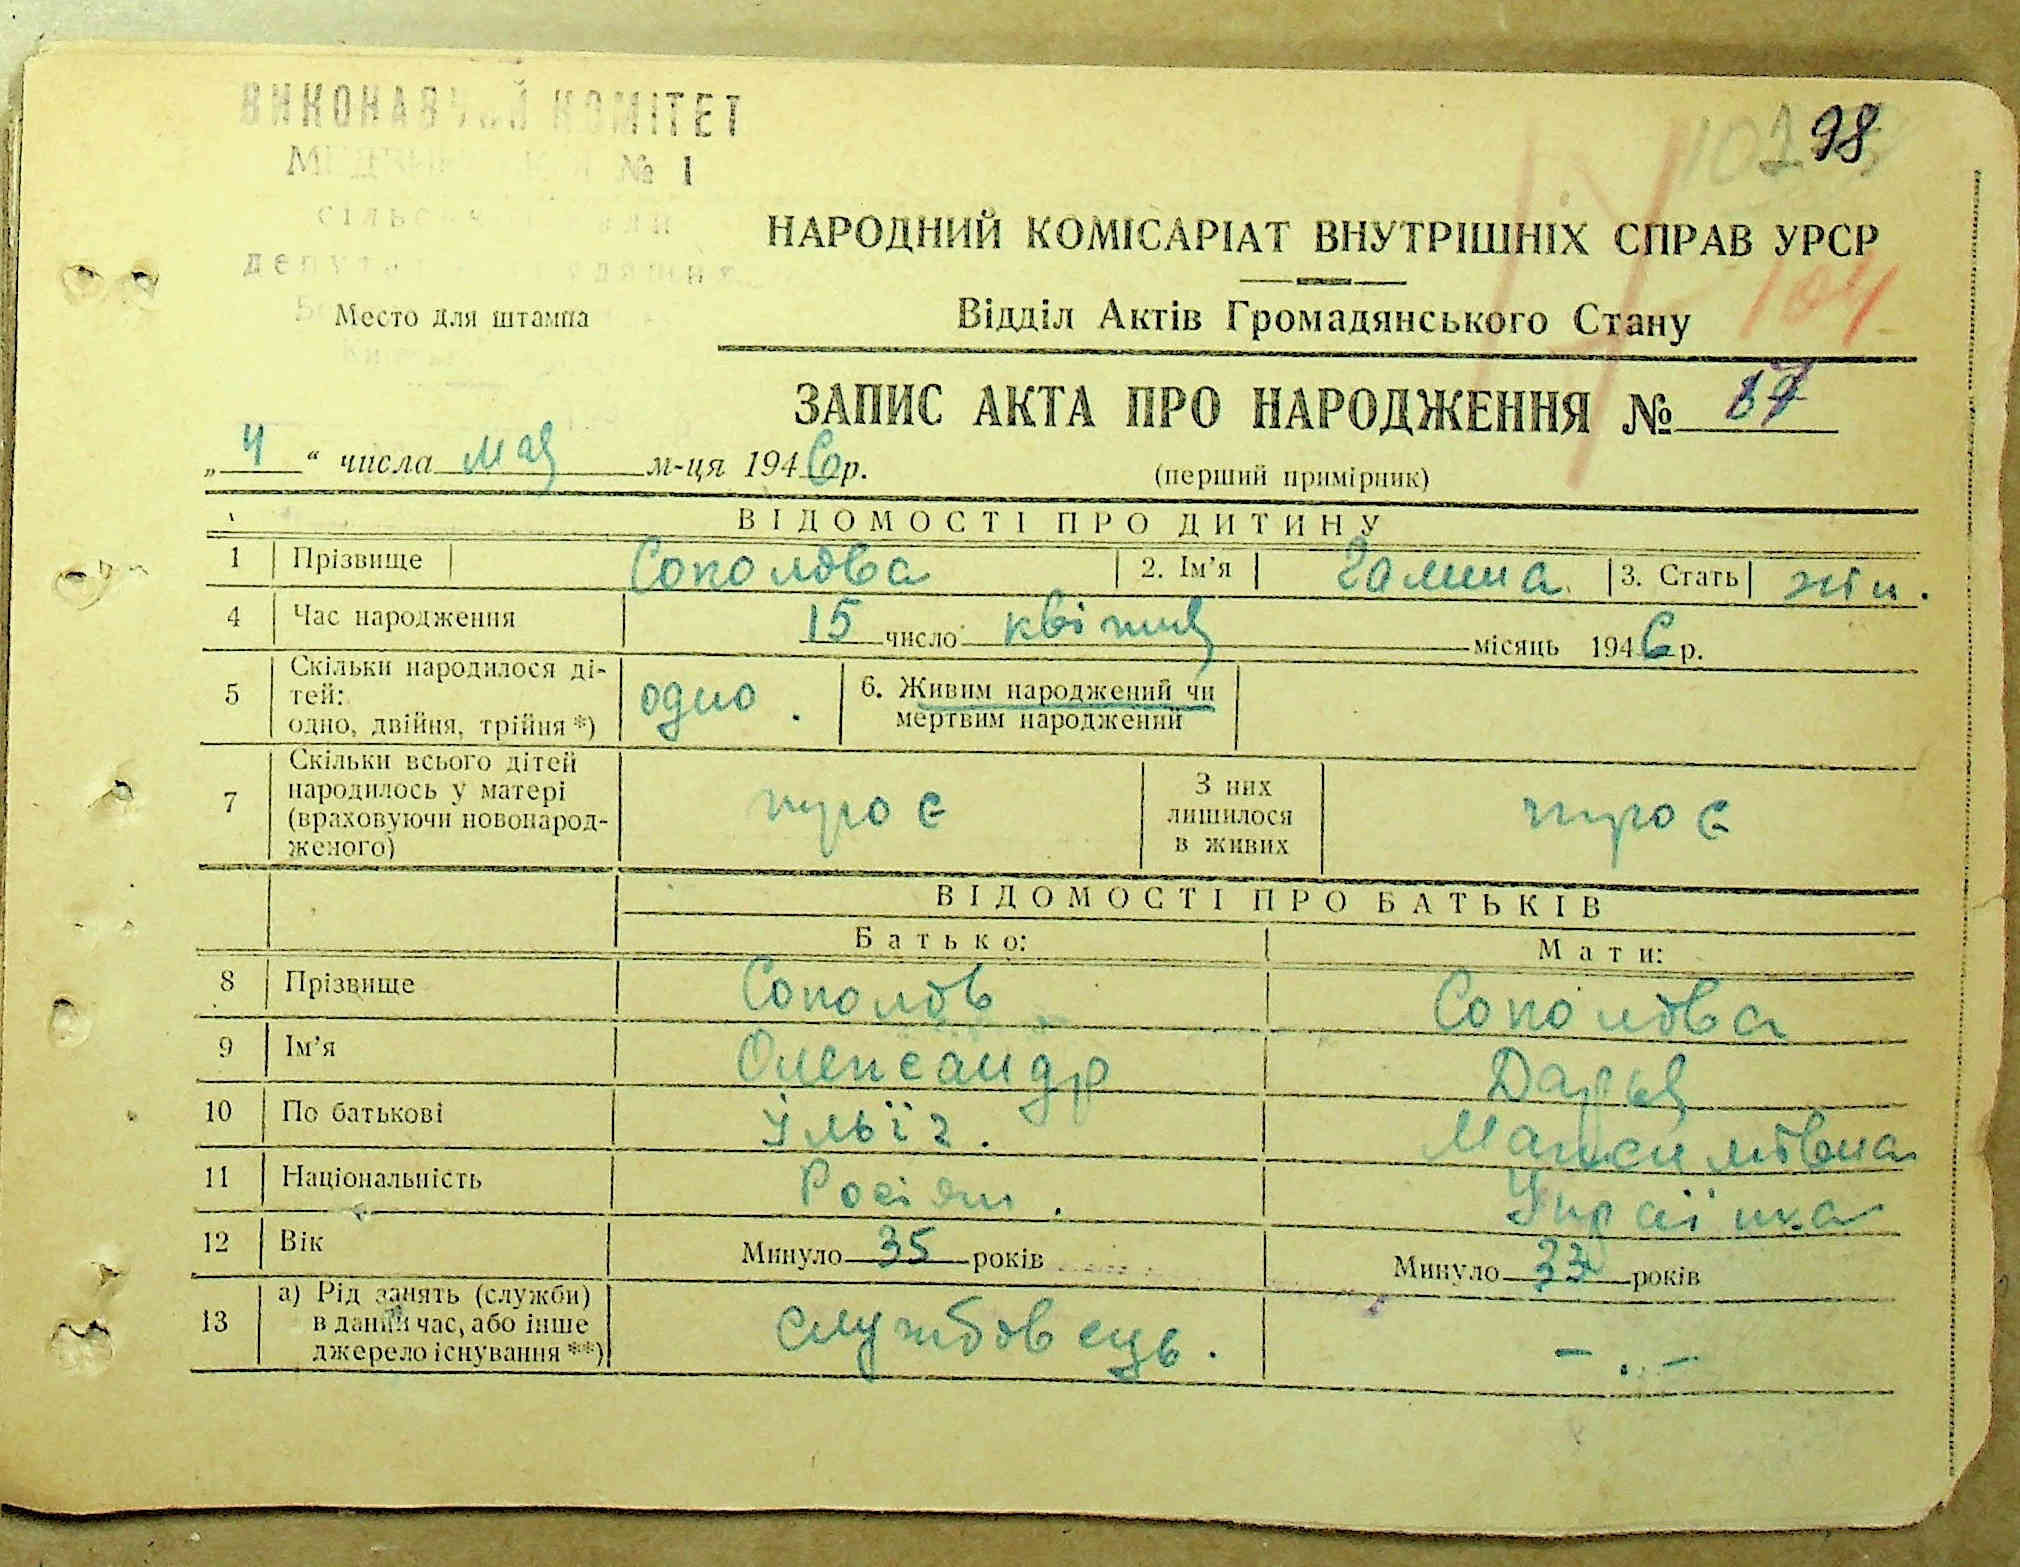 КОМІТЕТ
№ 1
98
НАРОДНИЙ КОМІСАРІАТ ВНУТРІШНІХ СПРАВ УРСР
104
Место для штампа
Відділ Актів Громадянського Стану
ЗАПИС АКТА ПРО НАРОДЖЕННЯ №
„ 4 “ числа мая м-ця 1946 р.
(перший примірник)
ВІДОМОСТІ ПРО ДИТИНУ
1 Прізвище Соколова 2. Ім’я Галина 3. Стать жін.
4 Час народження 15 число квітня місяць 1946 р.
5 Скільки народилося ді-
тей:
одно, двійня, трійня *) одно. 6. Живим народжений чи
мертвим народжений
7 Скільки всього дітей
народилось у матері
(враховуючи новонарод-
женого) троє З них
лишилося
в живих троє
ВІДОМОСТІ ПРО БАТЬКІВ
Батько: Мати:
8 Прізвище Соколов Соколова
9 Ім’я Олександр Дарья
10 По батькові Ільїч. Максимовна
11 Національність Росіян. Українка
12 Вік Минуло 35 років Минуло 33 років
13 а) Рід занять (служби)
в даний час, або інше
джерело існування **) службовець. – . –